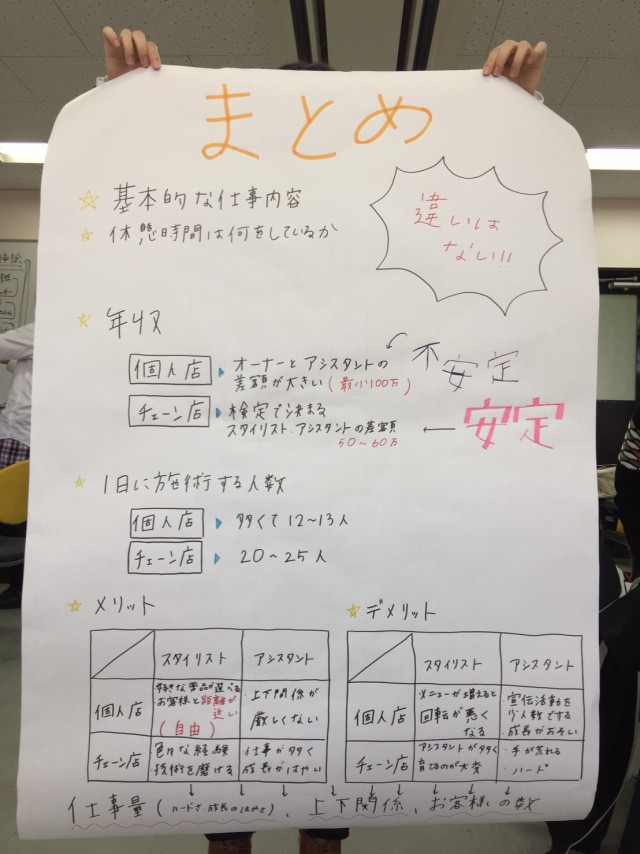 まとめ
☆ 基本的な仕事内容
☆ 休憩時間は何をしているか
違いは
ない!!
☆ 年収
個人店 ▶ オーナーとアシスタントの
差額が大きい(最小100万)
不安定
チェーン店 ▶ 検定で決まる
スタイリスト.アシスタントの差額
50〜60万
← 安定
☆ 1日に施術する人数
個人店 ▶ 多くて12〜13人
チェーン店 ▶ 20〜25人
☆ メリット
スタイリスト アシスタント
個人店
好きな薬品が選べる
お客様と距離が
近い
(自由)
・上下関係が
厳しくない
チェーン店
色々な経験
技術を磨ける
仕事が多く
成長がはやい
☆ デメリット
スタイリスト アシスタント
個人店
メニューが増えると
回転が悪く
なる
宣伝活動を
少人数でする
・成長がおそい
チェーン店
アシスタントが多く
育てるのが大変
・手が荒れる
・ハード
↓ ↓ ↓ ↓ ↓ ↓ ↓ ↓
仕事量(ハードさ.成長のはやさ)、上下関係、お客様の数